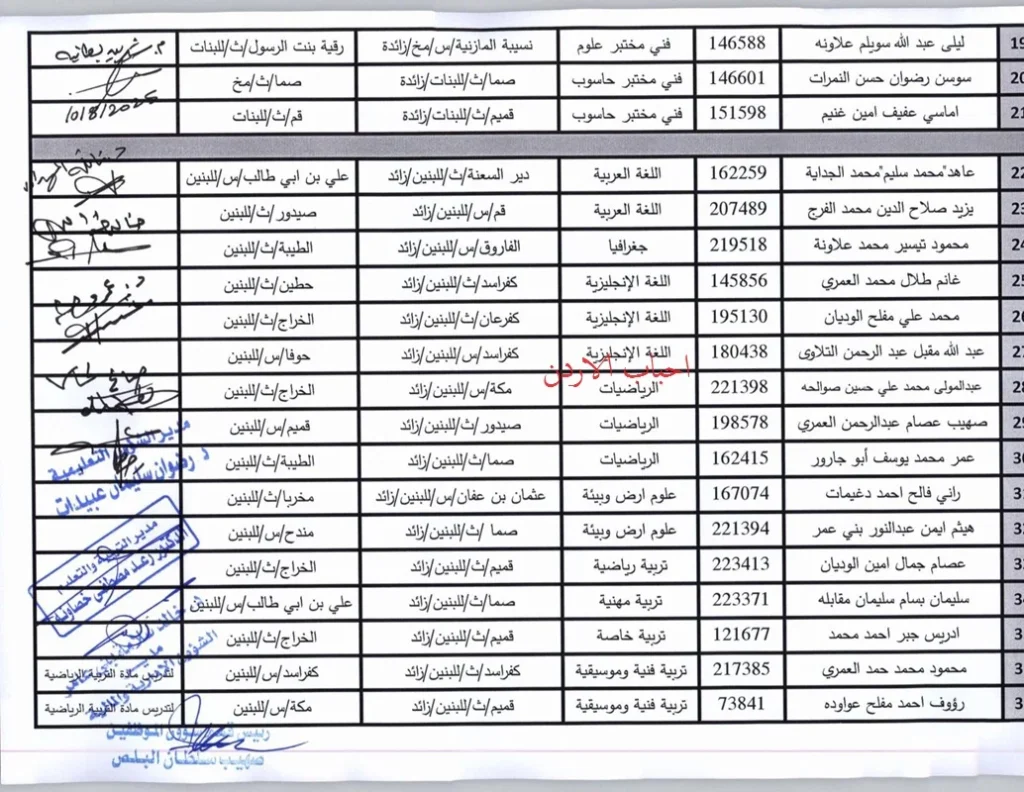 19 ليلى عبد الله سويلم علاونه 146588 فني مختبر علوم نسيبة المازنية/س/مخ/زائدة رقية بنت الرسول/ث/للبنات
20 سوسن رضوان حسن النمرات 146601 فني مختبر حاسوب صما/ث/للبنات/زائدة صما/ث/مخ
21 اماسي عفيف امين غنيم 151598 فني مختبر حاسوب قميم/ث/للبنات/زائدة قم/ث/للبنات
10/8/2025
22 عاهد"محمد سليم"محمد الجداية 162259 اللغة العربية دير السعنة/ث/للبنين/زائد علي بن ابي طالب/س/للبنين
23 يزيد صلاح الدين محمد الفرج 207489 اللغة العربية قم/س/للبنين/زائد صيدور/ث/للبنين
24 محمود تيسير محمد علاونة 219518 جغرافيا الفاروق/س/للبنين/زائد الطيبة/ث/للبنين
25 غانم طلال محمد العمري 145856 اللغة الإنجليزية كفراسد/ث/للبنين/زائد حطين/ث/للبنين
26 محمد علي مفلح الوديان 195130 اللغة الإنجليزية كفرعان/ث/للبنين/زائد الخراج/ث/للبنين
27 عبد الله مقبل عبد الرحمن التلاوى 180438 اللغة الإنجليزية كفراسد/س/للبنين/زائد حوفا/س/للبنين
احباب الاردن
28 عبدالمولى محمد علي حسين صوالحه 221398 الرياضيات مكة/س/للبنين/زائد الخراج/ث/للبنين
29 صهيب عصام عبدالرحمن العمري 198578 الرياضيات صيدور/ث/للبنين/زائد قميم/س/للبنين
30 عمر محمد يوسف أبو جارور 162415 الرياضيات صما/ث/للبنين/زائد الطيبة/ث/للبنين
راني فالح احمد دغيمات 167074 علوم ارض وبيئة عثمان بن عفان/س/للبنين/زائد مخربا/ث/للبنين
هيثم ايمن عبدالنور بني عمر 221394 علوم ارض وبيئة صما /س/للبنين/زائد مندح/س/للبنين
عصام جمال امين الوديان 223413 تربية رياضية قميم/ث/للبنين/زائد الخراج/ث/للبنين
سليمان بسام سليمان مقابله 223371 تربية مهنية صما/ث/للبنين/زائد علي بن ابي طالب/س/للبنين
ادريس جبر احمد محمد 121677 تربية خاصة قميم/ث/للبنين/زائد الخراج/ث/للبنين
محمود محمد حمد العمري 217385 تربية فنية وموسيقية كفراسد/ث/للبنين/زائد كفراسد/س/للبنين لتدريس مادة التربية الرياضية
رؤوف احمد مفلح عواوده 73841 تربية فنية وموسيقية قميم/ث/للبنين/زائد مكة/س/للبنين لتدريس مادة التربية الرياضية
مدير الشؤون التعليمية
د. رضوان سليمان عبيدات
مدير التربية والتعليم
الدكتور رعد مصطفى خصاونه
رئيس قسم شؤون الموظفين
صهيب سلطان البلص